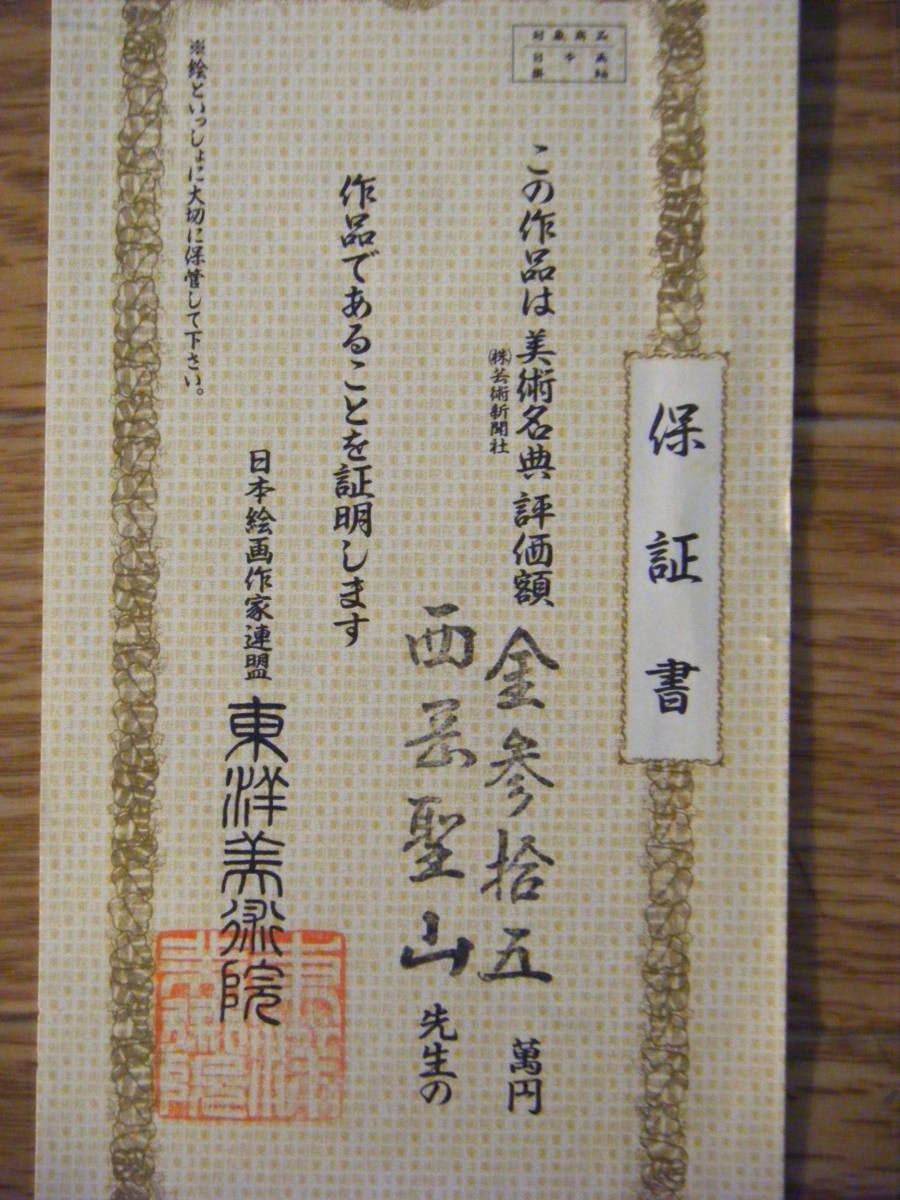 保証書
この作品は美術名典評価額金参拾五萬円
㈱芸術新聞社
西岳聖山先生の
作品であることを証明します
日本絵画作家連盟東洋美術院
※絵といっしょに大切に保管して下さい。